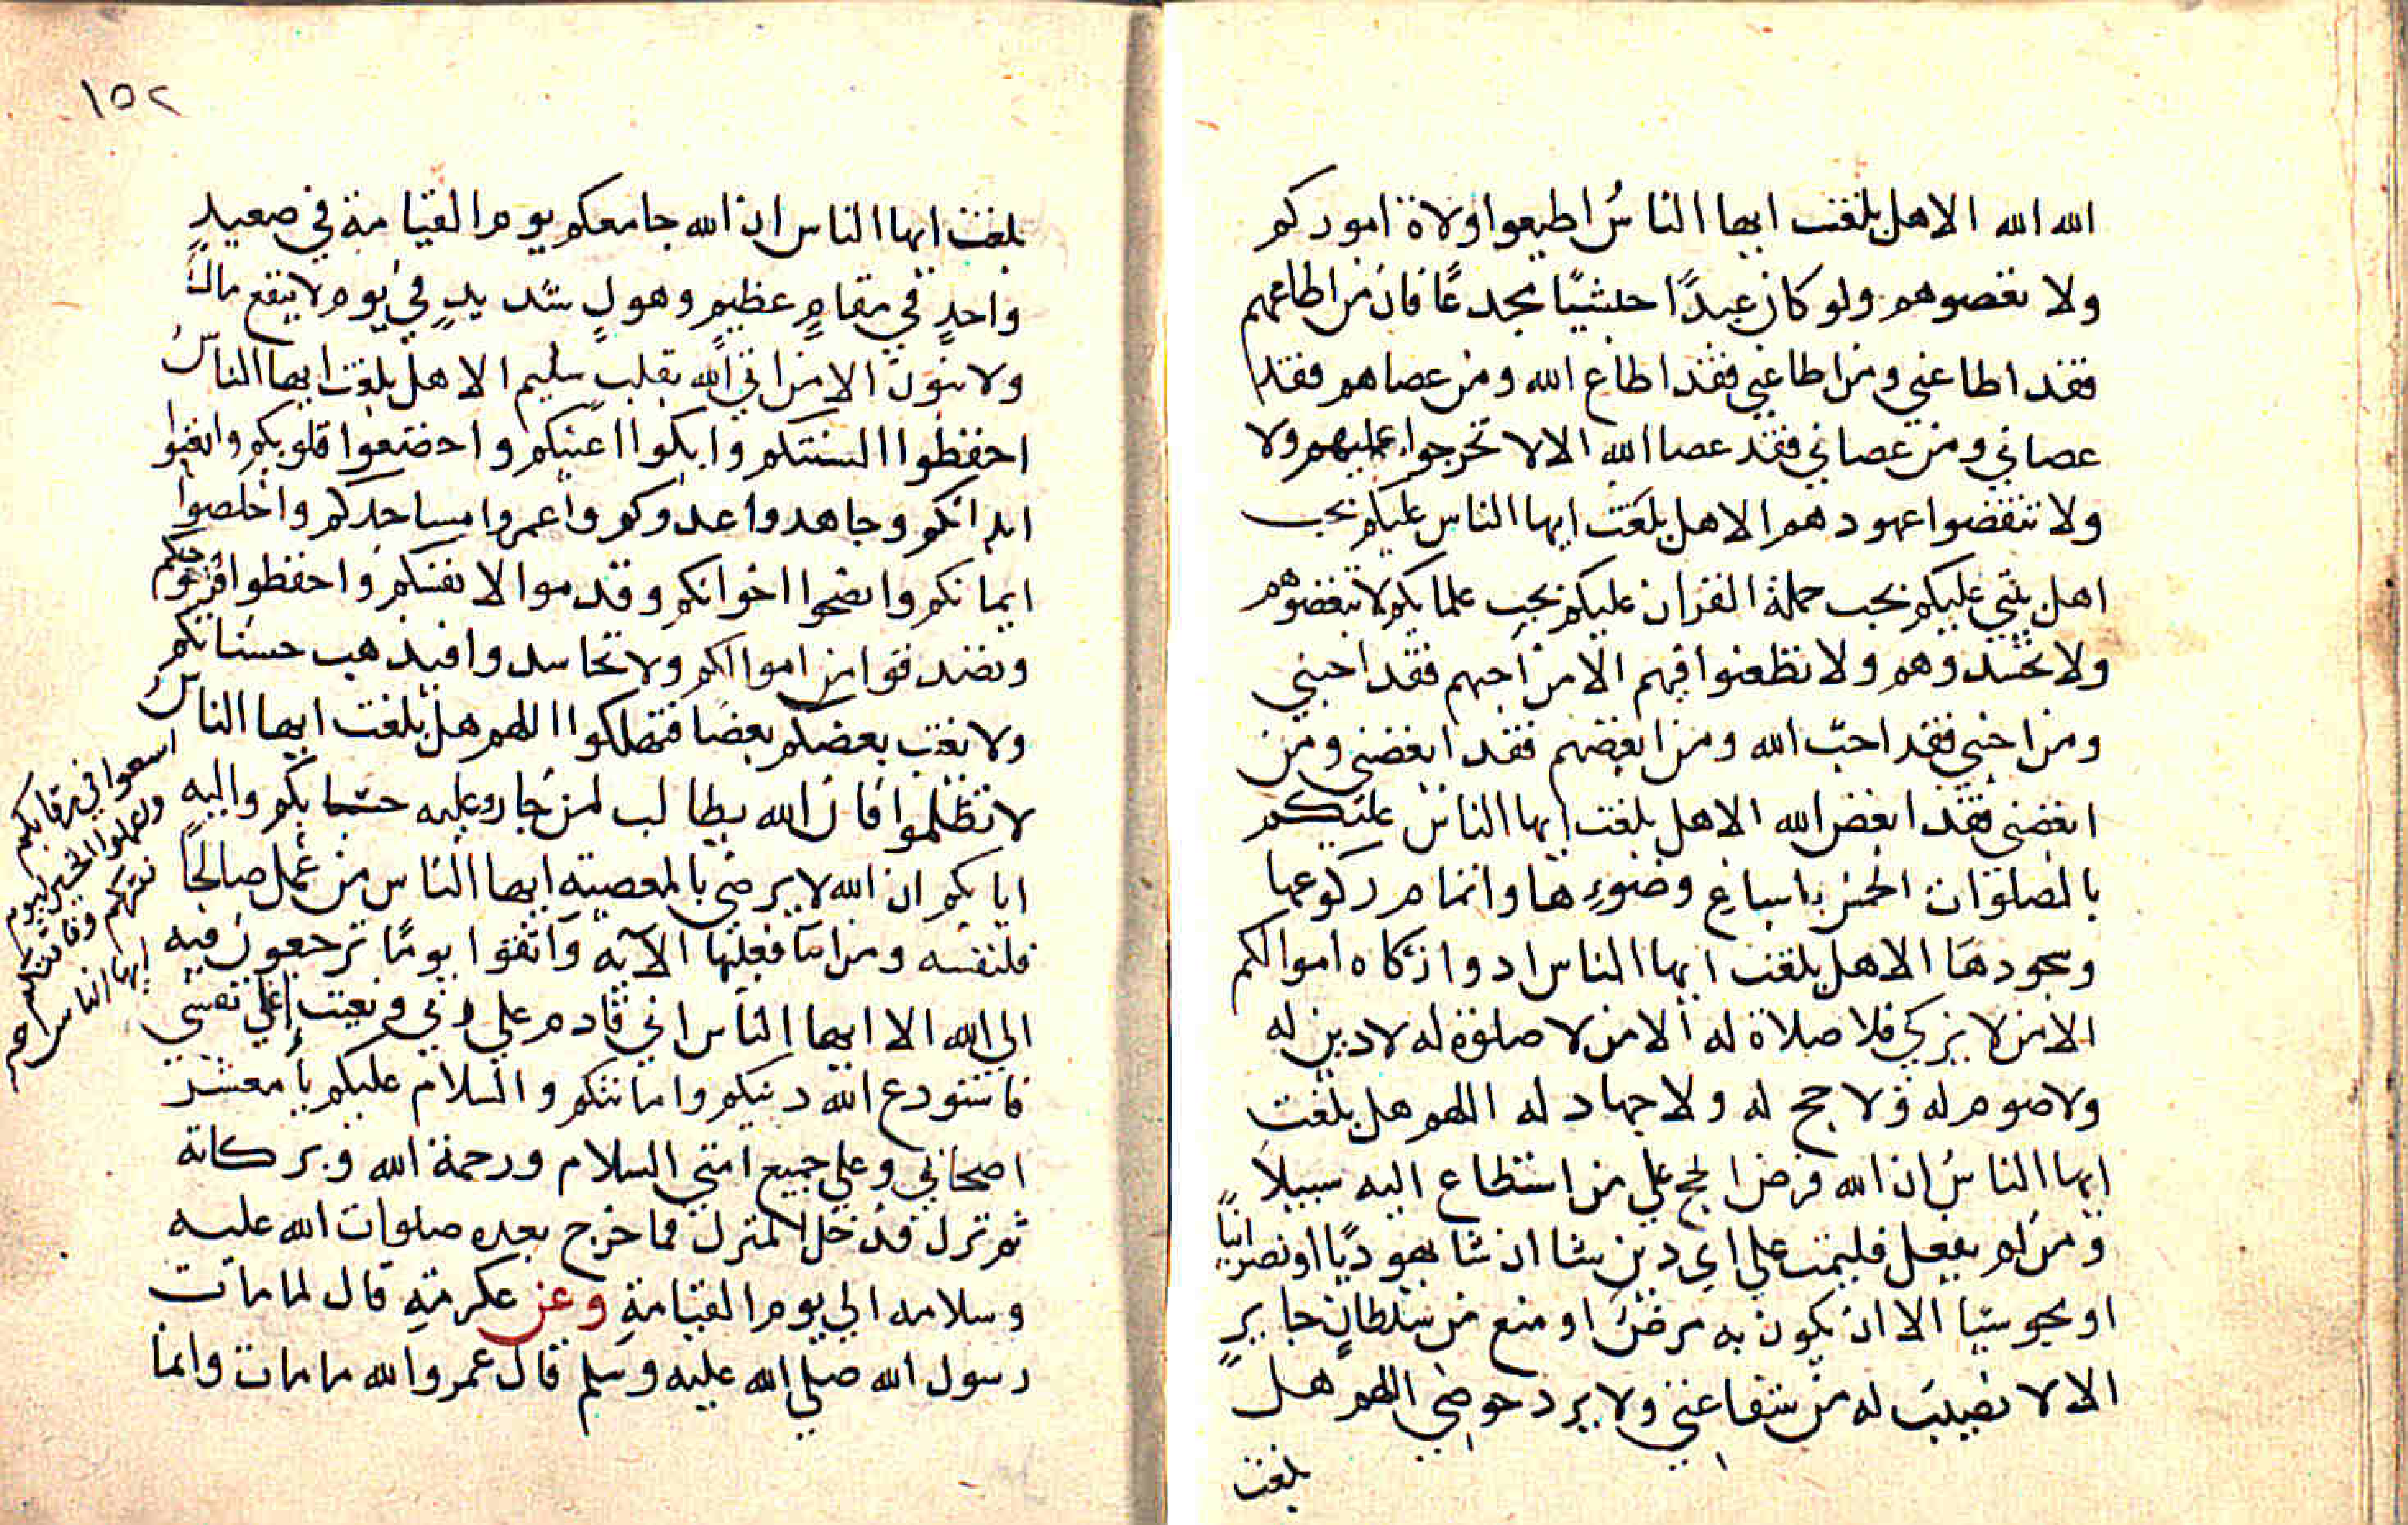 الله الله الا هل بلغت ايها الناسُ اطيعوا ولاة اموركم
ولا تعصوهم ولو كان عبدًا حبشيًا مجدعًا فان من اطاعهم
فقد اطاعني ومن اطاعني فقد اطاع الله ومن عصاهم فقد
عصاني ومن عصاني فقد عصا الله الا لا تخرجوا عليهم ولا
ولا تنقضوا عهودهم الا هل بلغت ايها الناس عليكم بحب
اهل بيتي عليكم بحب حملة القران عليكم بحب علمايكم لا تبغضوهم
ولا تحسدوهم ولا تطعنوا فيهم الا من احبهم فقد احبني
ومن احبني فقد احبّ الله ومن ابغضهم فقد ابغضني ومن
ابغضني فقد ابغض الله الا هل بلغت ايها الناس عليكم
بالصلوات الخمس باسباغ وضوءها واتمام ركوعها
وسجودها الا هل بلغت ايها الناس ادوا زكاه اموالكم
الا من لا يزكي فلا صلاة له الا من لا صلوة له لا دين له
ولا صوم له ولا حج له ولا جهاد له اللهم هل بلغت
ايها الناسُ ان الله فرض الحج علي من استطاع اليه سبيلا
ومن لم يفعل فليمت علي اي دين شا ان شا يهوديًا او نصرانيًا
او مجوسيا الا ان يكون به مرض او منع من سلطانٍ جايرٍ
الا لا نصيب له من شفاعتي ولا يرد حوضي اللهم هل
بلغت
١٥٢
بلغت ايها الناس ان الله جامعكم يوم القيامة في صعيدٍ
واحدٍ في مقامٍ عظيمٍ وهولٍ شديدٍ في يوم لا ينفع مالٌ
ولا بنون الا من اتي الله بقلب سليم الا هل بلغت ايها الناسُ
احفظوا السنتكم وابكوا اعينكم واخضعوا قلوبكم واتعبوا
ابدانكم وجاهدوا عدوكم واعمروا مساجدكم واخلصوا
ايمانكم وانصحوا اخوانكم وقدموا لانفسكم واحفظوا فروجكم
وتصدقوا من اموالكم ولا تحاسدوا فيذهب حسناتكم
ولا يغتب بعضكم بعضا فتهلكوا اللهم هل بلغت ايها الناسُ
اسعوا في رقابكم
واعملوا الخير ليوم
ايها الناس
لا تظلموا فان الله يطالب لمن جار وعليه حسابكم واليه
ايابكم ان الله لا يرضي بالمعصية ايها الناس من عمل صالحًا
فلنفسه ومن اسا فعليها الآيه واتقوا يومًا ترجعون فيه
الي الله الا ايها الناس اني قادم علي ربي ونعيت إلي نفسي
فاستودع الله دينكم وامانتكم والسلام عليكم يا معشر
اصحابي وعلي جميع امتي السلام ورحمة الله وبركاته
ثم نزل فدخل المنزل فما خرج بعده صلوات الله عليه
وسلامه الي يوم القيامة وعن عكرمة قال لما مات
رسول الله صلي الله عليه وسلم قال عمر والله ما مات وانما